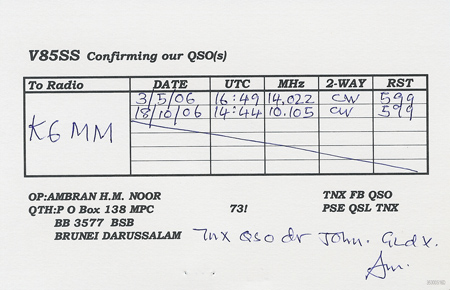 V85SS Confirming our QSO(s)
To Radio DATE UTC MHz 2-WAY RST
3/5/06 16:49 14.022 CW 599
18/10/06 14:44 10.105 CW 599
K6MM
OP:AMBRAN H.M. NOOR TNX FB QSO
QTH:P O Box 138 MPC 73! PSE QSL TNX
BB 3577 BSB
BRUNEI DARUSSALAM Tnx QSO dr John. GLdx.